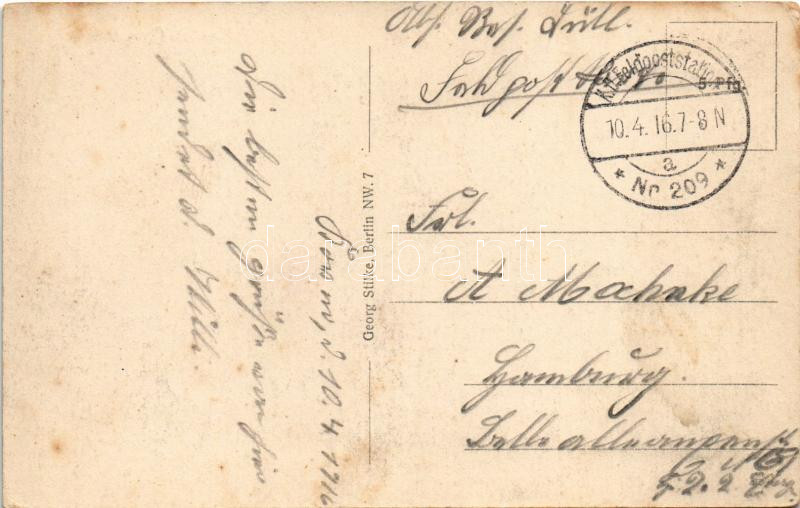 Abs. Res. Lüll.
Feldpost
K.D. Feldpoststation
5 Pfg
10.4.16.7-8 N
a
* Nr 209 *
Frl.
A Mahnke
Hamburg.
Belle alleanzenstr
Georg Stilke, Berlin NW. 7
d. 10.4.1916
Die besten Grüße von hier
sendet d. Willi.
darabanth